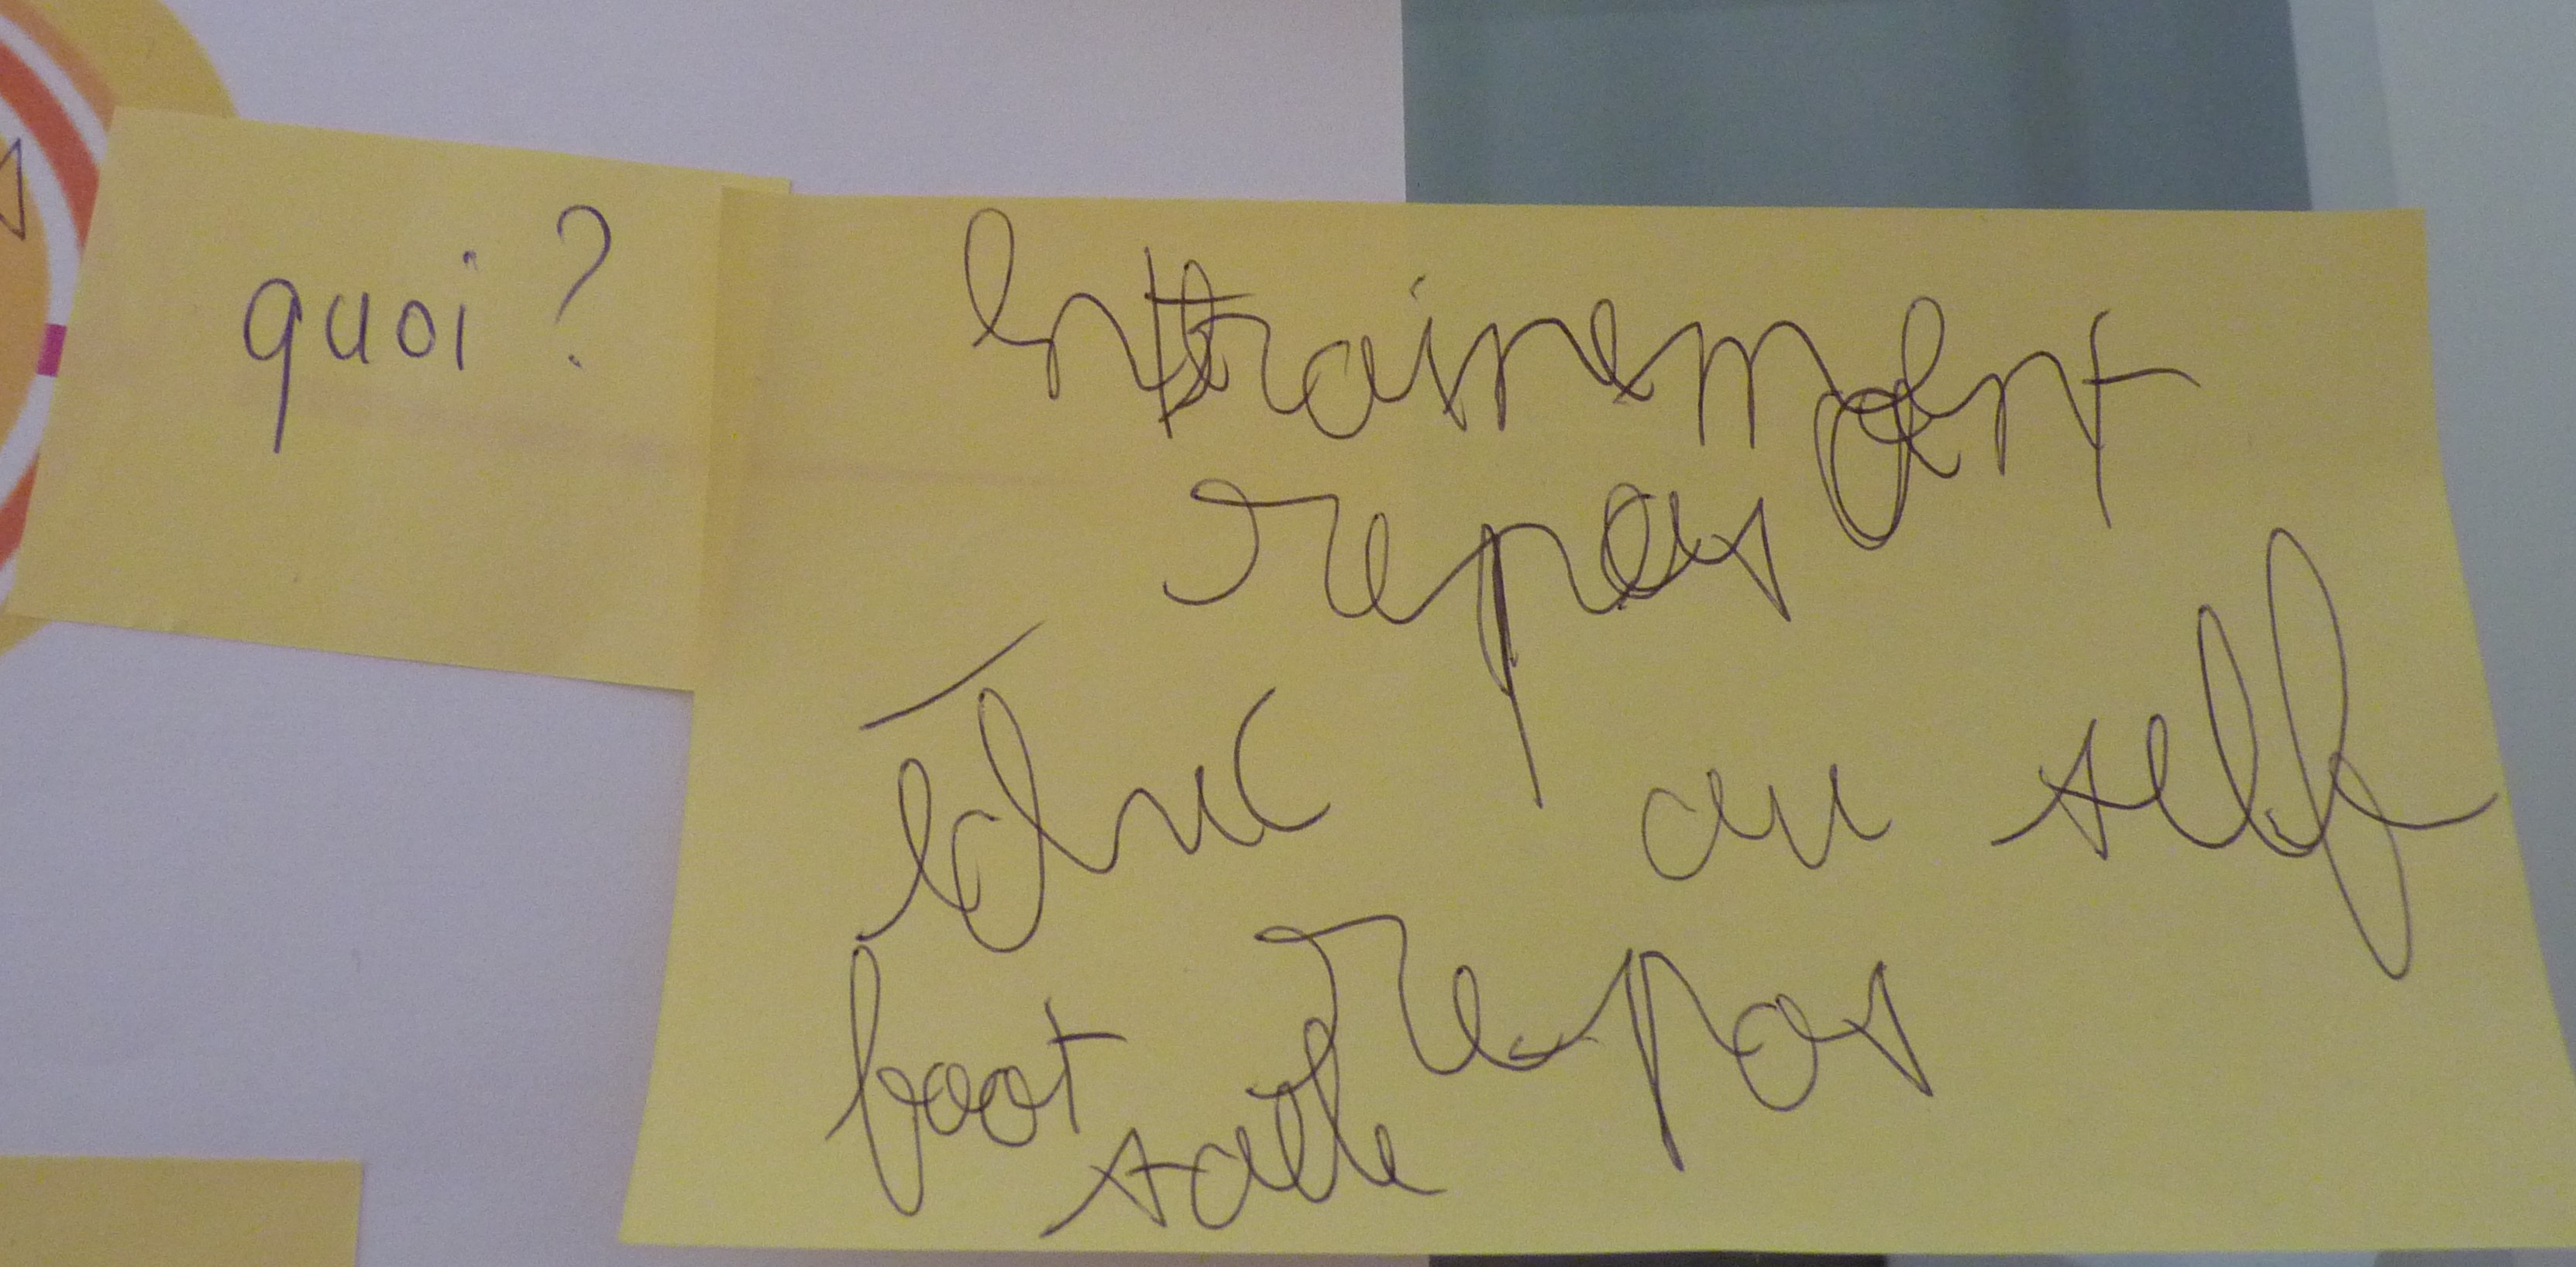 quoi ?
Entrainement
repas
éduc au self
foot repos
salle